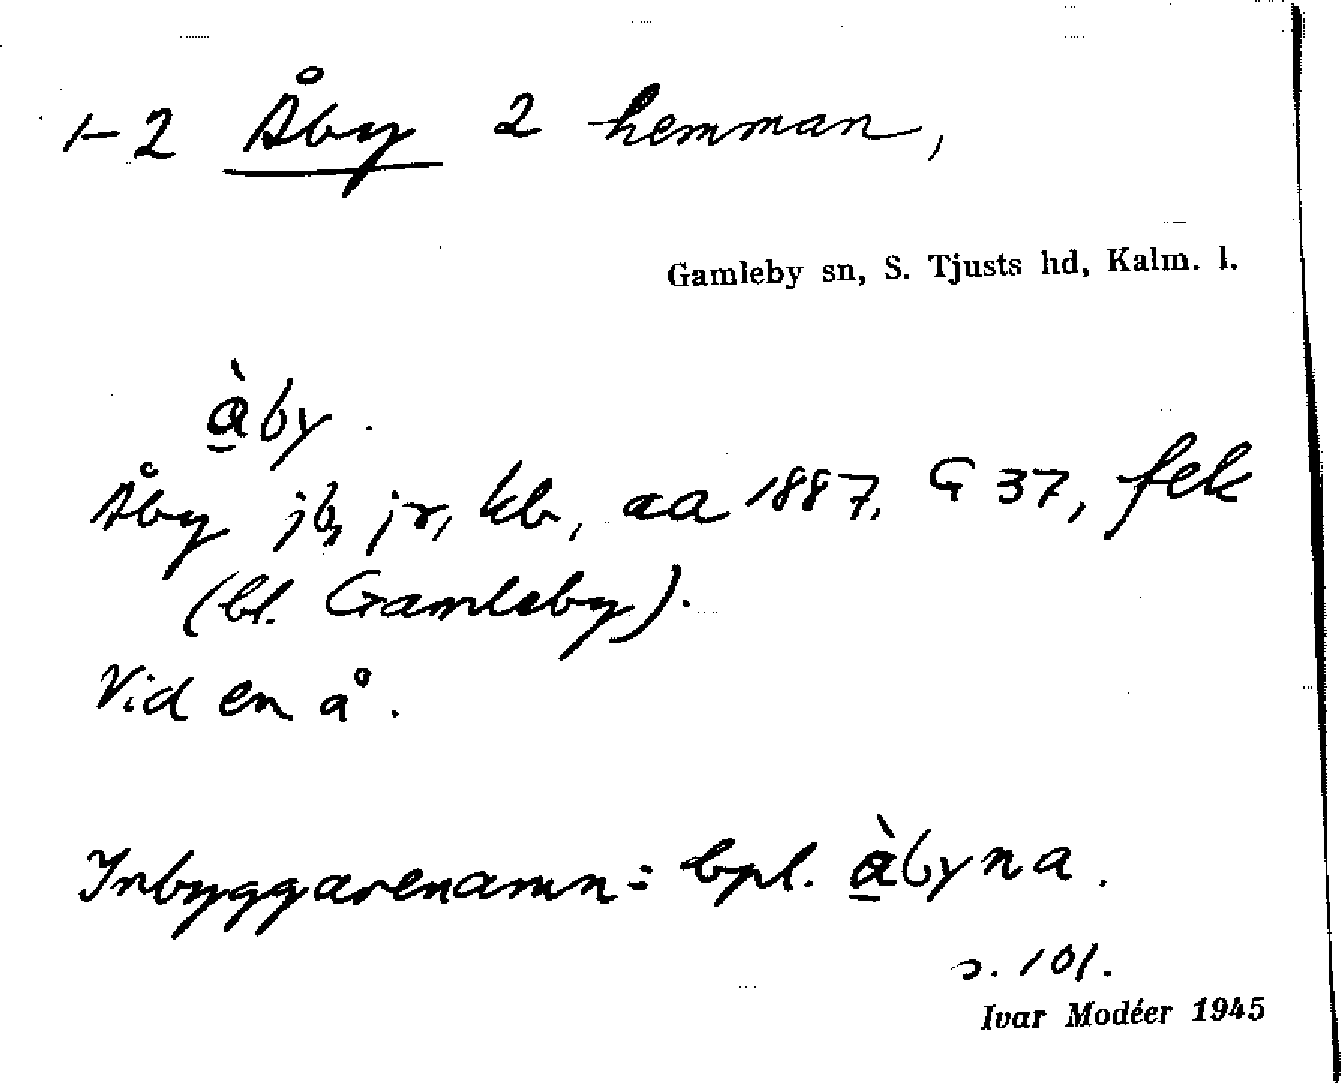 1-2 Åby 2 hemman,
Gamleby sn, S. Tjusts hd, Kalm. l.
à̲by.
Åby jb, jr, kb, aa 1887, G 37, fek
(bl. Gamleby).
Vid en å.
Inbyggarenamn: bpl. à̲byna.
s. 101.
Ivar Modéer 1945